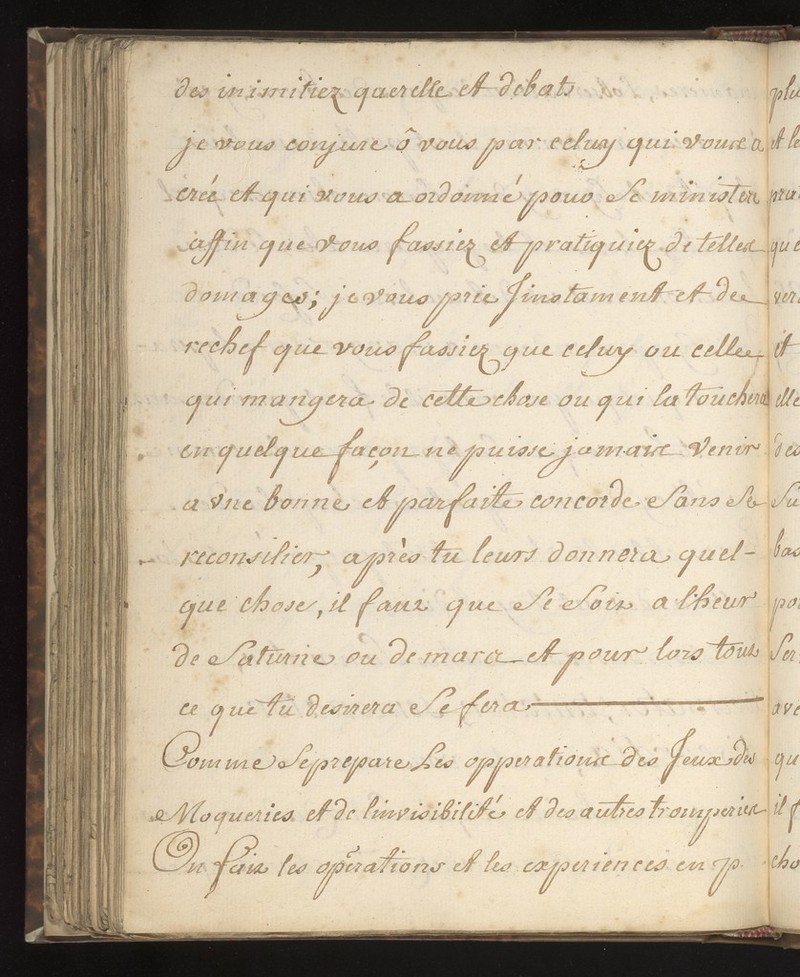 des inimitiez querelle et debats
je vous conjure ô vous par celuy qui vous a
creé et qui vous a ordonné pour ce ministere
affin que vous fassiez et pratiquiez de telles
domages; je vous prie Jnstament et de
rechef que vous fassiez que celuy ou celle
qui mangera de cette chose ou qui la touchera
en quelque façon ne puisse jamais Venir
a vne bonne et parfaite concorde Sans Se
reconsilier, après tu leurs donnera quel-
que chose, il faut que Se Soit a l'heur
de Saturne ou de mars et pour lors tous
ce que tu desirera Se fera
Comme Se prepare Les opperations des Jeux des
Moqueries et de l'invisibilité et des autres tromperies
On fait les opérations et les experiences en p.